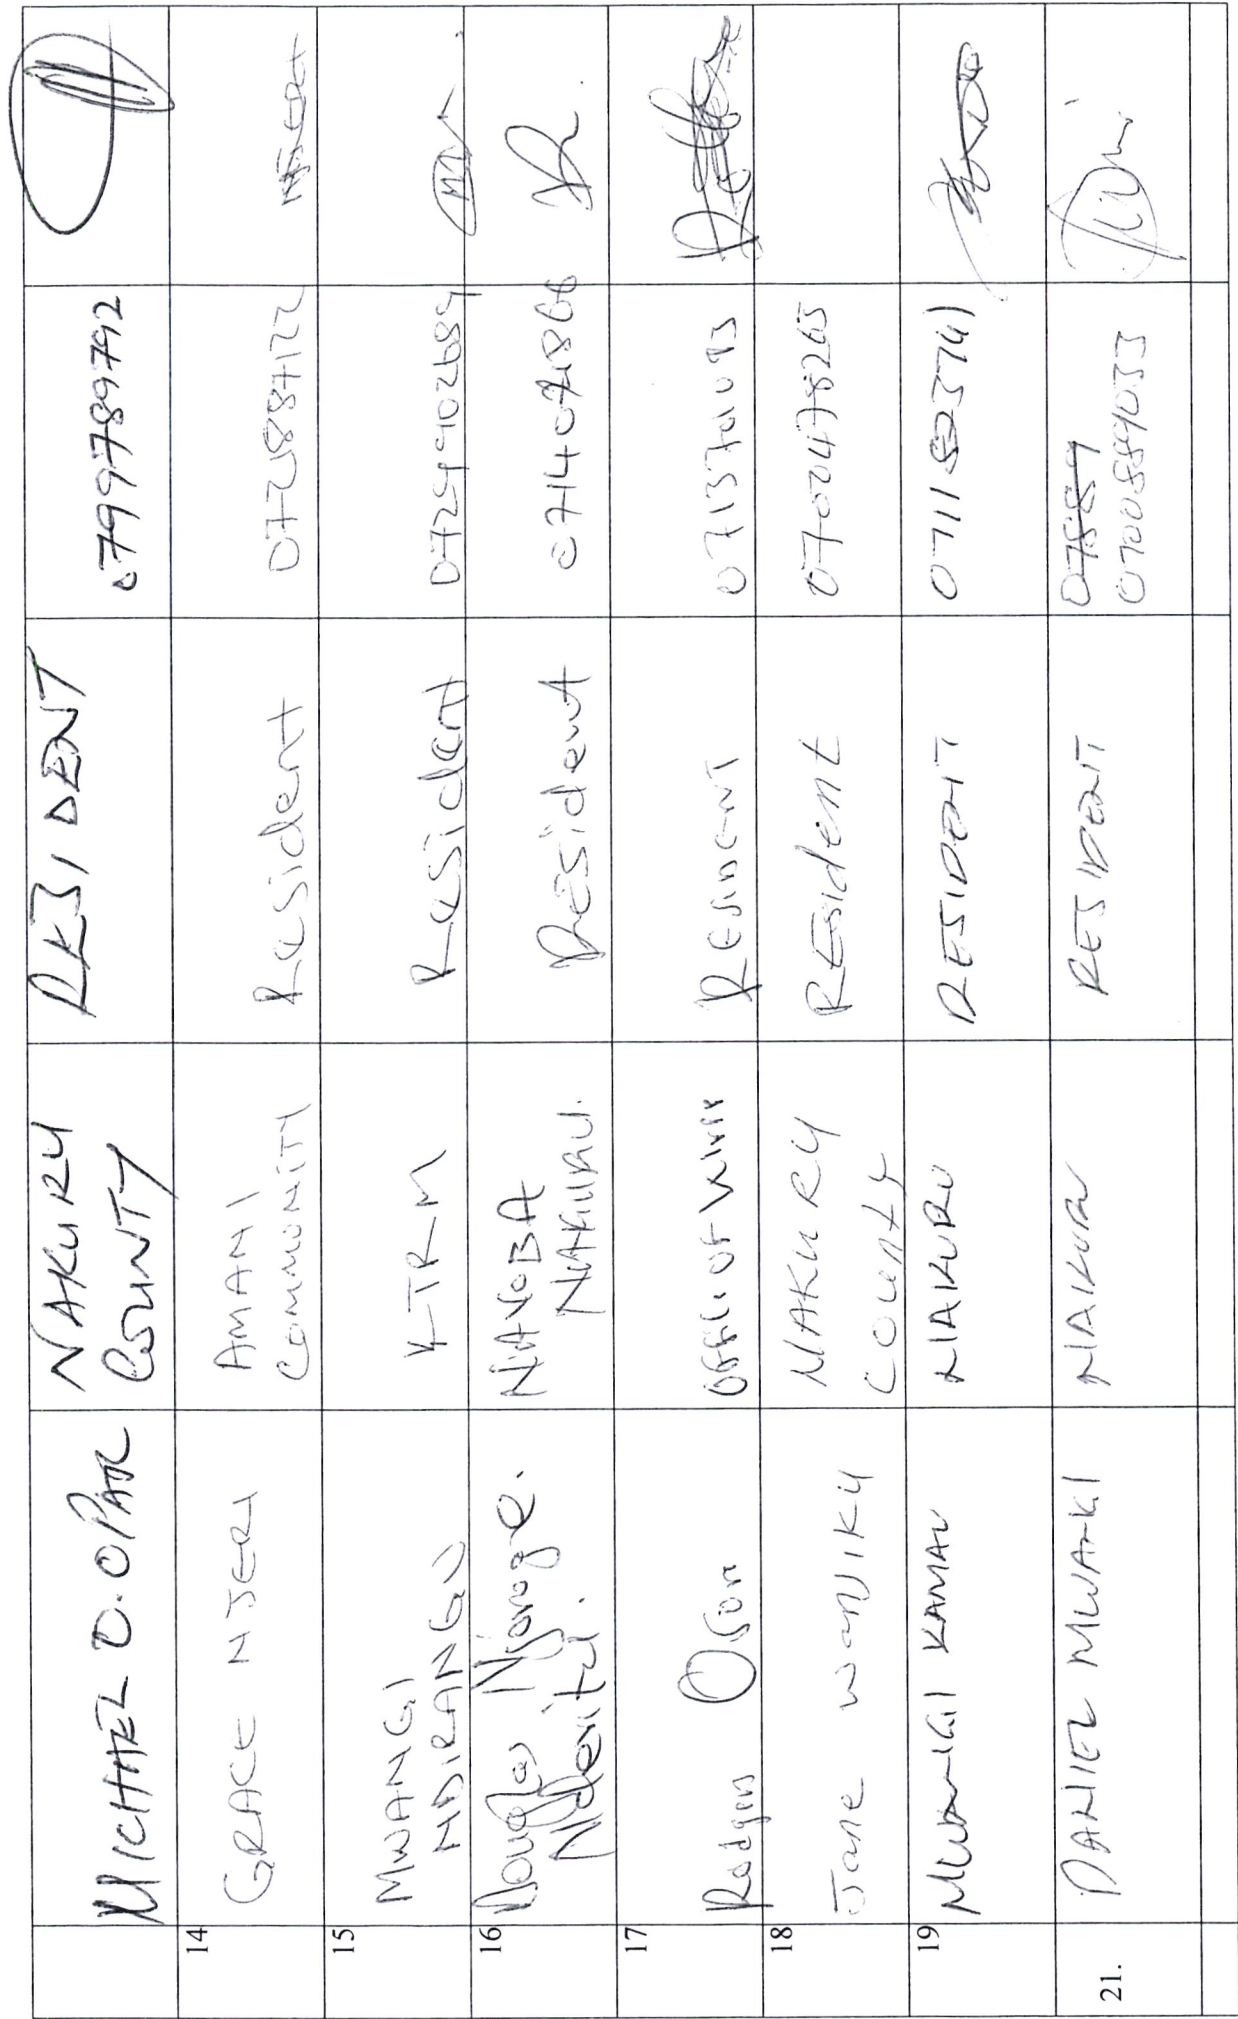 MICHAEL O. OPAR NAKURU COUNTY RESIDENT 0799789792
14 GRACE NJERI AMANI COMMUNITY Resident 072887122
15 MWANGI NDIRANGU KTRM Resident 0729902689
16 Douglas Njoroge Nderitu. NAVOBA NAKURU. Resident
17 Rodgers Oron OFFICE OF WWW RESIDENT 0713701093
18 Jane WANJIKU NAKURU County REsident 0702478265
19 MWANGI KAMAU NAKURU RESIDENT
21. DANIEL MWANGI NAKURU RESIDENT 07889 0700889033